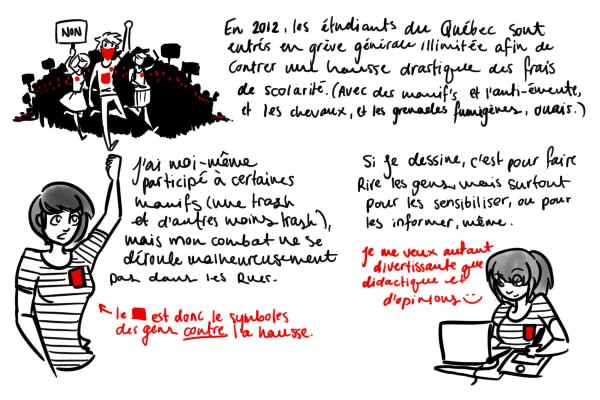 NON
En 2012, les étudiants du Québec sont
entrés en grève générale illimitée afin de
contrer une hausse drastique des frais
de scolarité. (Avec des manif's et l'anti-émeute,
et les chevaux, et les grenades fumigènes, ouais.)
J'ai moi-même
participé à certaines
manifs (une trash
et d'autres moins trash),
mais mon combat ne se
déroule malheureusement
pas dans les rues.
le est donc le symboles
des gens contre la hausse.
Si je dessine, c'est pour faire
Rire les gens, mais surtout
pour les sensibiliser, ou pour
les informer, même.
Je me veux autant
divertissante que
didactique et
d'opinions